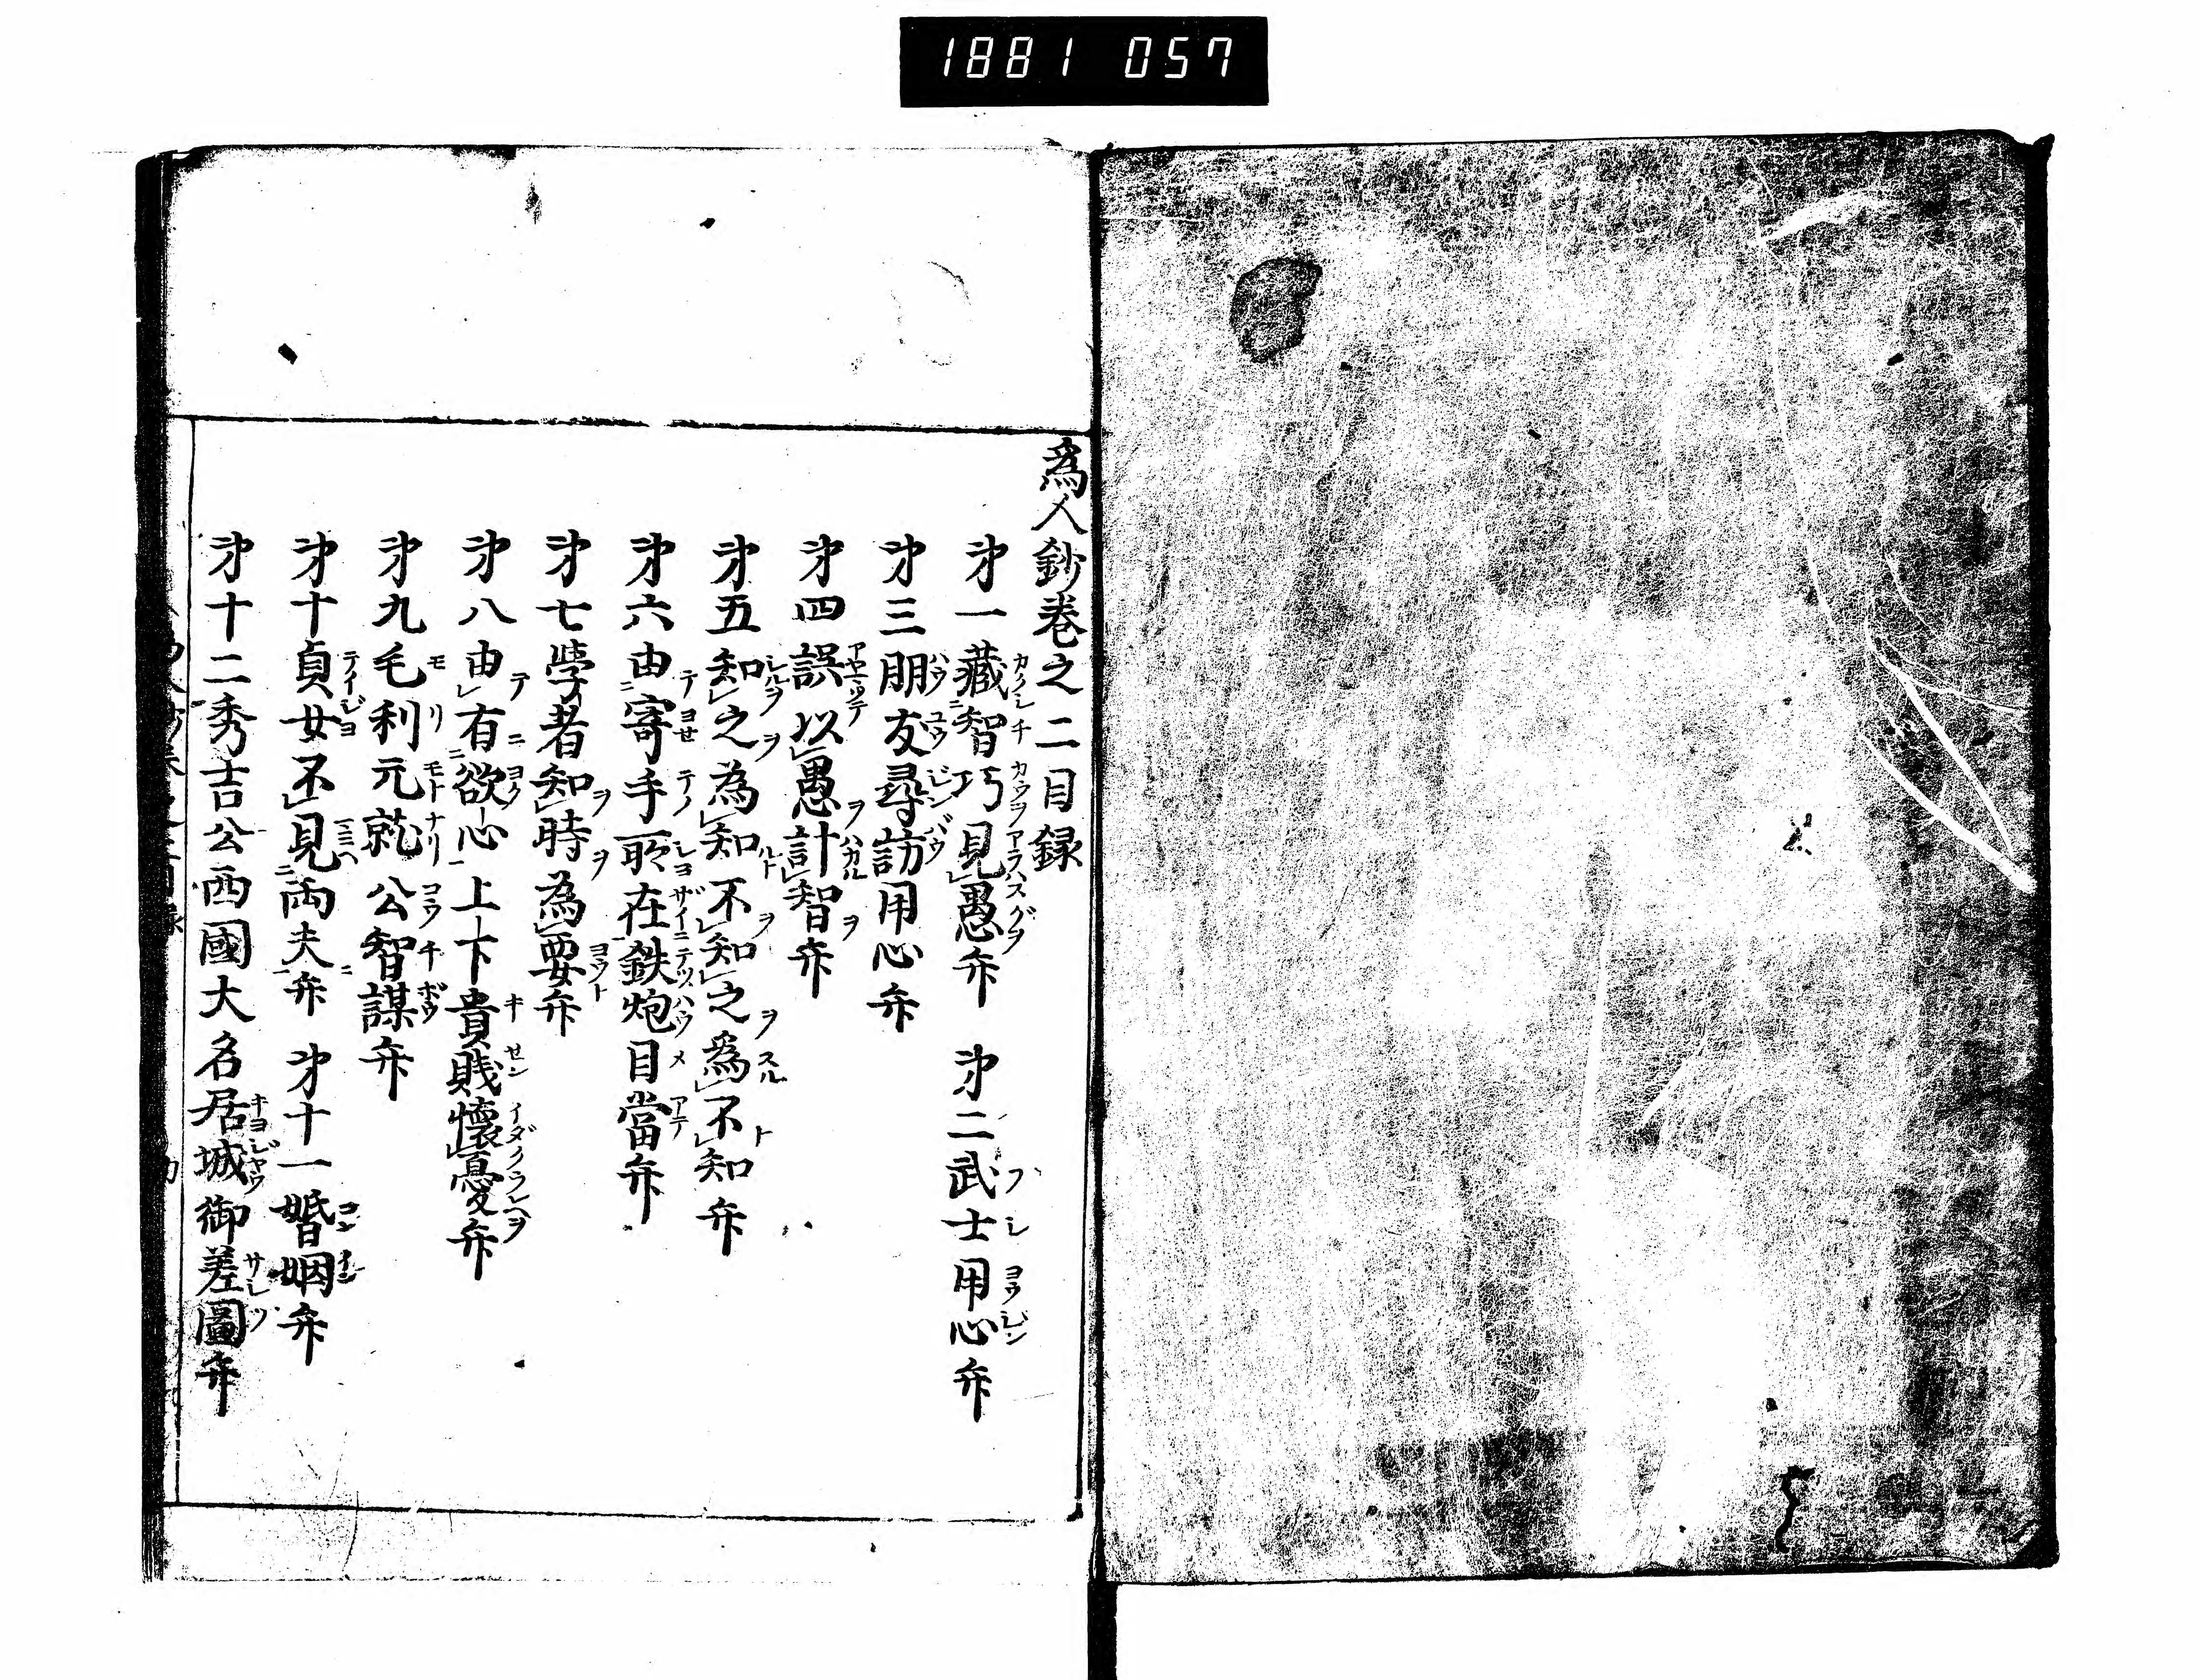 1881 057
為人鈔巻之二目録
㐧一藏智巧見愚弁　㐧二武士用心弁
㐧三朋友尋訪用心弁
㐧四誤以愚計智弁
㐧五知之為知不知之為不知弁
㐧六由寄手所在鉄炮目當弁
㐧七学者知時為要弁
㐧八由有欲心上下貴賎懐憂弁
㐧九毛利元就公智謀弁
㐧十貞女不見両夫弁　㐧十一婚姻弁
㐧十二秀吉公西國大名居城御差圖弁